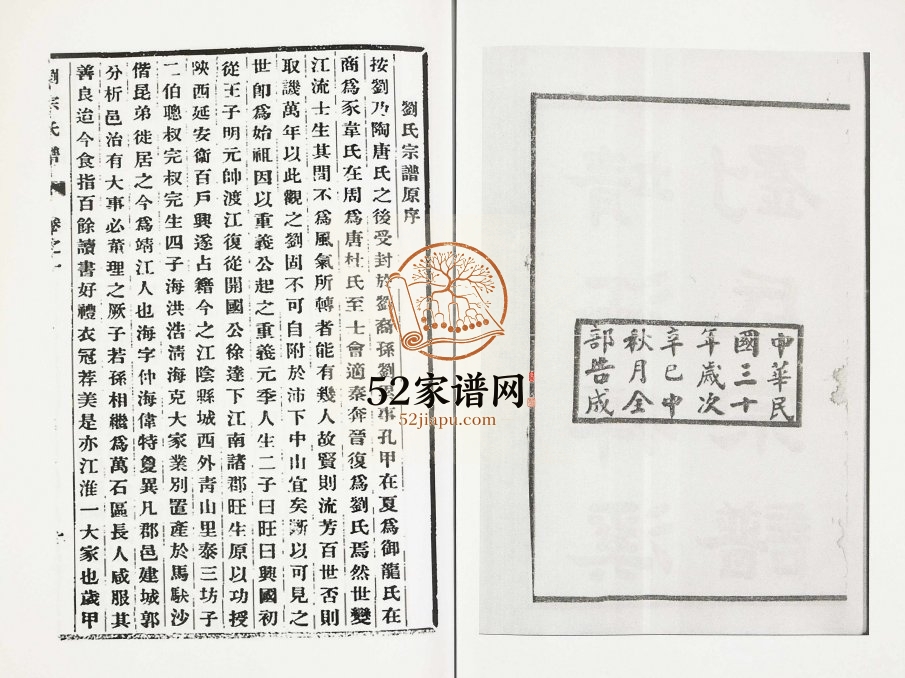 中華民
國三十
年歲次
辛巳中
秋月全
部告成
劉氏宗譜原序
按劉乃陶唐氏之後受封於劉裔孫劉事孔甲在夏為御龍氏在
商為豕韋氏在周為唐杜氏至士會適秦奔晉復為劉氏焉然世變
江流士生其間不為風氣所轉者能有幾人故賢則流芳百世否則
取譏萬年以此觀之劉固不可自附於沛下中山宜矣斷以可見之
世卽為始祖因以重義公起之重義元季人生二子曰旺曰興國初
從王子明元帥渡江復從開國公徐達下江南諸郡旺生原以功授
陝西延安衞百戶興遂占籍今之江陰縣城西外靑山里泰三坊子
二伯聰叔完叔完生四子海洪浩淸海克大家業別置產於馬馱沙
偕昆弟徙居之今為靖江人也海字仲海偉特敻異凡郡邑建城郭
分析邑治有大事必董理之厥子若孫相繼為萬石區長人咸服其
善良迨今食指百餘讀書好禮衣冠荐美是亦江淮一大家也歲甲
劉宗氏譜 卷之一
52家谱网
52jiapu.com